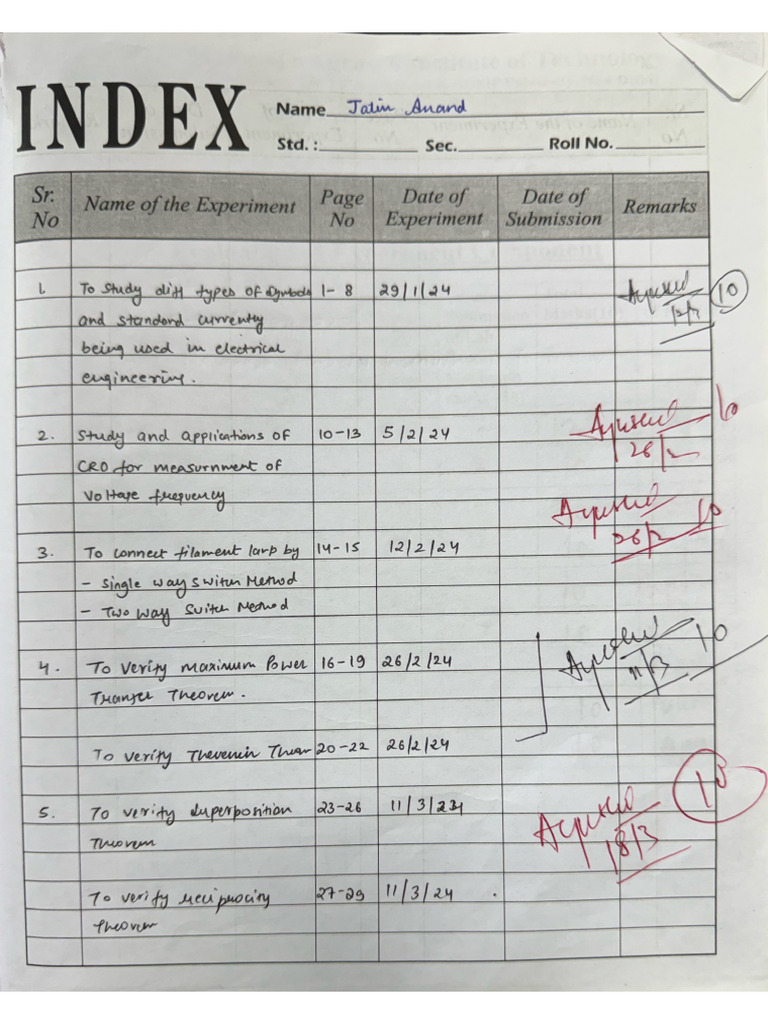 INDEX
Name Jatin Anand
Std. : Sec. Roll No.
Sr. No Name of the Experiment Page No Date of Experiment Date of Submission Remarks
1. To study diff types of Symbols 1-8 29/1/24 10
and standard currently
being used in electrical
engineering.
2. Study and applications of 10-13 5/2/24 10
CRO for measurnment of 26/2
Voltage frequency
26/2 10
3. To connect filament lamp by 14-15 12/2/24
- Single way switch Method
- Two way Switch Method
10
4. To verify maximum Power 16-19 26/2/24 11/3
Transfer Theorem.
To verify Thevenin 20-22 26/2/24
10
5. To verify Superposition 23-26 11/3/24
Theorem 18/3
To verify reciprocity 27-29 11/3/24 .
Theorem